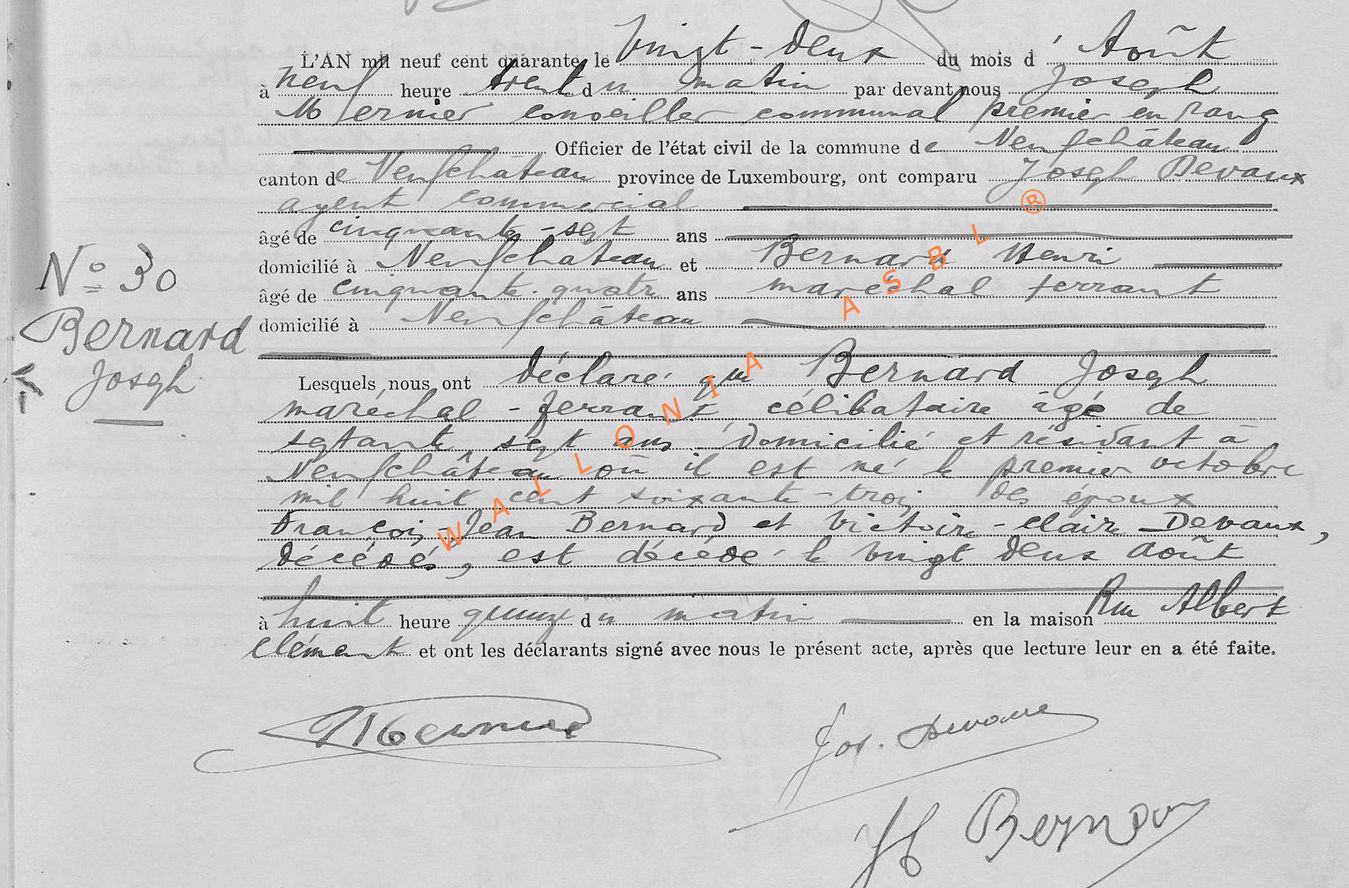 L'AN mil neuf cent quarante le vingt-deux du mois d'Août
à neuf heure trent du matin par devant nous Joseph
Mernier conseiller communal premier en rang
Officier de l'état civil de la commune de Neufchâteau
canton de Neufchâteau province de Luxembourg, ont comparu Joseph Devaux
agent commercial
âgé de cinquante-sept ans
domicilié à Neufchateau et Bernard Henri
N° 30
âgé de cinquante-quatre ans maréchal ferrant
Bernard
domicilié à Neufchâteau
Joseph
Lesquels nous ont déclaré que Bernard Joseph
maréchal-ferrant célibataire âgé de
septante sept ans domicilié et résidant à
Neufchâteau où il est né le premier octobre
mil huit cent soixante-trois des époux
François-Jean Bernard et Victoire-Clair Devaux,
décédés, est décédé le vingt deux août
à huit heure quinze du matin en la maison Rue Albert
Clément et ont les déclarants signé avec nous le présent acte, après que lecture leur en a été faite.
JMernier
Jos. Devaux
H Bernard
WALLONIA ASBL ®